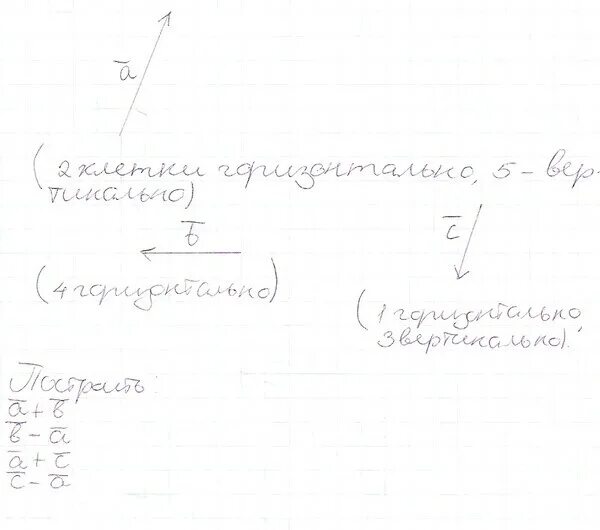 a̅
(2 клетки горизонтально, 5 - вер-
тикально)
b̅
c̅
(4 горизонтально)
(1 горизонтально
3 вертикально).
Построить:
a̅ + b̅
b̅ - a̅
a̅ + c̅
c̅ - a̅